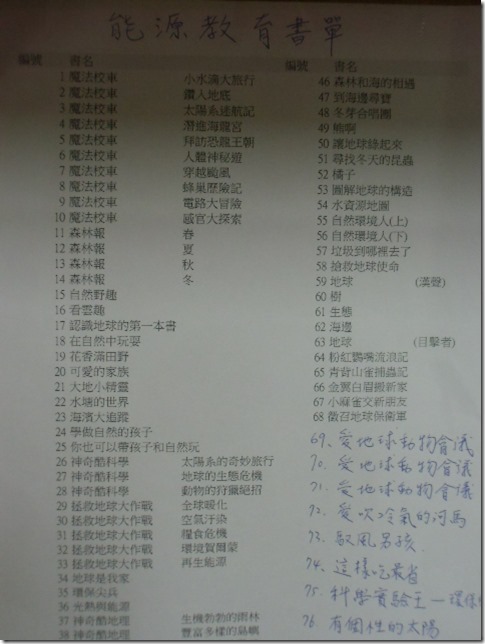 能源教育書單
編號 書名
1 魔法校車 小水滴大旅行
2 魔法校車 鑽入地底
3 魔法校車 太陽系迷航記
4 魔法校車 潛進海龍宮
5 魔法校車 拜訪恐龍王朝
6 魔法校車 人體神秘遊
7 魔法校車 穿越颱風
8 魔法校車 蜂巢歷險記
9 魔法校車 電路大冒險
10 魔法校車 感官大探索
11 森林報 春
12 森林報 夏
13 森林報 秋
14 森林報 冬
15 自然野趣
16 看雲趣
17 認識地球的第一本書
18 在自然中玩耍
19 花香滿田野
20 可愛的家族
21 大地小精靈
22 水塘的世界
23 海濱大追蹤
24 學做自然的孩子
25 你也可以帶孩子和自然玩
26 神奇酷科學 太陽系的奇妙旅行
27 神奇酷科學 地球的生態危機
28 神奇酷科學 動物的狩獵絕招
29 拯救地球大作戰 全球暖化
30 拯救地球大作戰 空氣汙染
31 拯救地球大作戰 糧食危機
32 拯救地球大作戰 環境賀爾蒙
33 拯救地球大作戰 再生能源
34 地球是我家
35 環保尖兵
36 光熱與能源
37 神奇酷地理 生機勃勃的雨林
38 神奇酷地理 豐富多樣的島嶼
編號 書名
46 森林和海的相遇
47 到海邊尋寶
48 冬芽合唱團
49 熊啊
50 讓地球綠起來
51 尋找冬天的昆蟲
52 橘子
53 圖解地球的構造
54 水資源地圖
55 自然環境人(上)
56 自然環境人(下)
57 垃圾到哪裡去了
58 搶救地球使命
59 地球 (漢聲)
60 樹
61 生態
62 海邊
63 地球 (目擊者)
64 粉紅鸚嘴流浪記
65 青背山雀捕蟲記
66 金翼白眉搬新家
67 小麻雀交新朋友
68 徵召地球保衛軍
69、愛地球動物會議
70、愛地球動物會議
71、愛地球動物會議
72、愛吹冷氣的河馬
73、馭風男孩
74、這樣吃最省
75、科學實驗王—環保
76、有個性的太陽